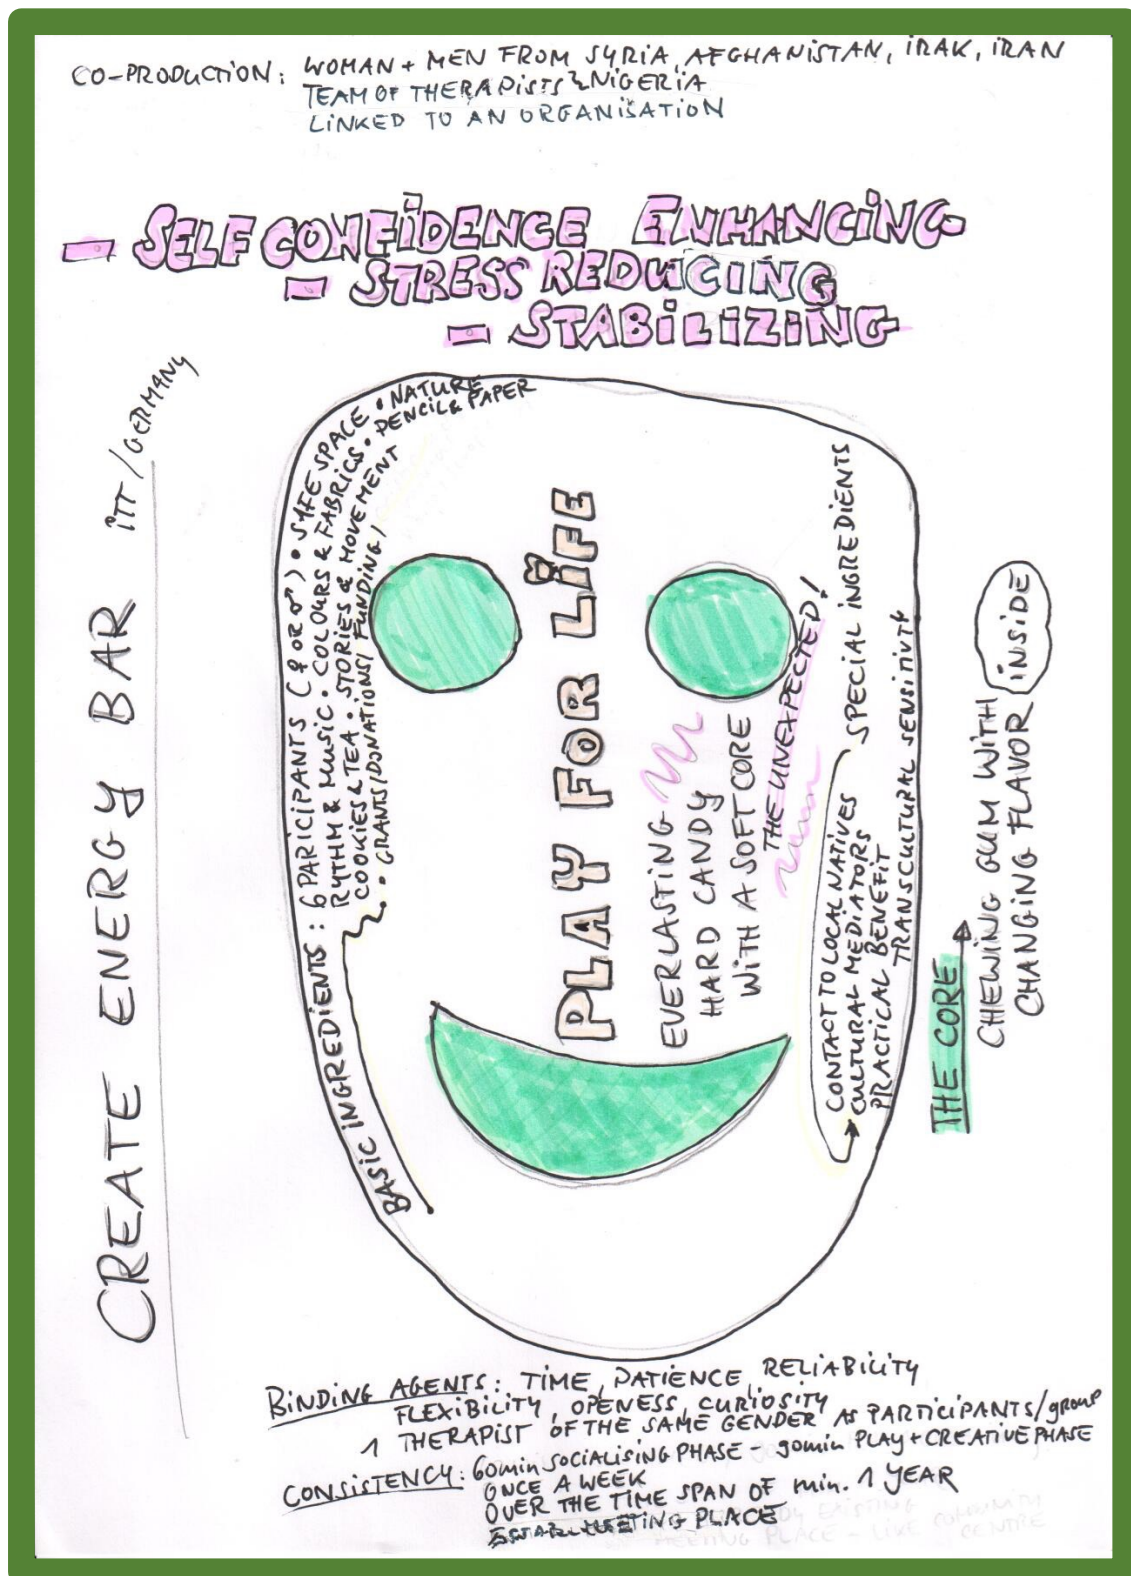 CO-PRODUCTION: WOMAN + MEN FROM SYRIA, AFGHANISTAN, IRAK, IRAN
TEAM OF THERAPISTS & NIGERIA
LINKED TO AN ORGANISATION
- SELF CONFIDENCE ENHANCING
- STRESS REDUCING
- STABILIZING
CREATE ENERGY BAR iTT/GERMANY
BASIC INGREDIENTS: 6 PARICIPANTS (♀ OR ♂) • SAFE SPACE • NATURE
RYTHM & MUSIC • COLOURS & FABRICS • PENCIL & PAPER
COOKIES & TEA • STORIES & MOVEMENT
• GRANTS/DONATIONS/FUNDING/
PLAY FOR LIFE
EVERLASTING
HARD CANDY
WITH A SOFT CORE
THE UNEXPECTED!
SPECIAL INGREDIENTS
CONTACT TO LOCAL NATIVES
CULTURAL MEDIATORS
PRACTICAL BENEFIT
TRANSCULTURAL SENSITIVITY
THE CORE
CHEWING GUM WITH
CHANGING FLAVOR INSIDE
BINDING AGENTS: TIME, PATIENCE, RELIABILITY
FLEXIBILITY, OPENESS, CURIOSITY
1 THERAPIST OF THE SAME GENDER AS PARTICIPANTS/group
CONSISTENCY: 60min SOCIALISING PHASE - 90min PLAY + CREATIVE PHASE
ONCE A WEEK
OVER THE TIME SPAN OF min. 1 YEAR
MEETING PLACE
MEETING PLACE - LIKE COMMUNITY
CENTRE